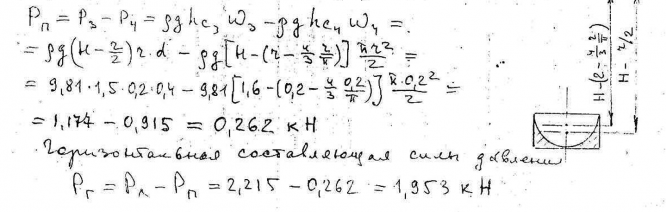 Pп = P₃ − P₄ = ρg h_c₃ ω₃ − ρg h_c₄ ω₄ =
= ρg(H − r/2) r·d − ρg[H − (r − 4/3 r/π)] πr²/2 =
= 9,81·1,5·0,2·0,4 − 9,81[1,6 − (0,2 − 4/3 0,2/π)] π·0,2²/2 =
= 1,177 − 0,915 = 0,262 кН
Горизонтальная составляющая силы давления
Pг = Pл − Pп = 2,215 − 0,262 = 1,953 кН
H−(r − 4/3 r/π)
H − r/2